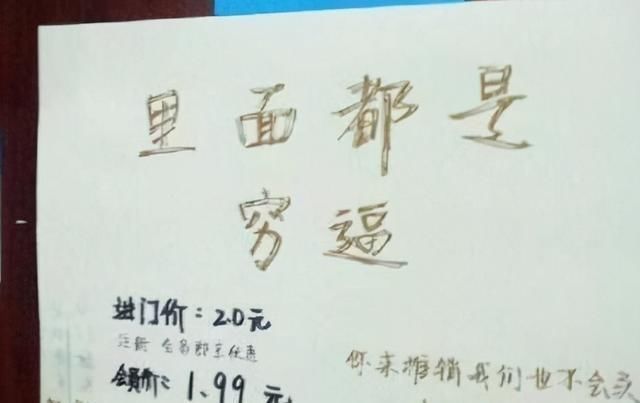 里面都是
穷逼
进门价：2.0元
注册会员即享优惠
会员价：1.99元
你来推销我们也不会买